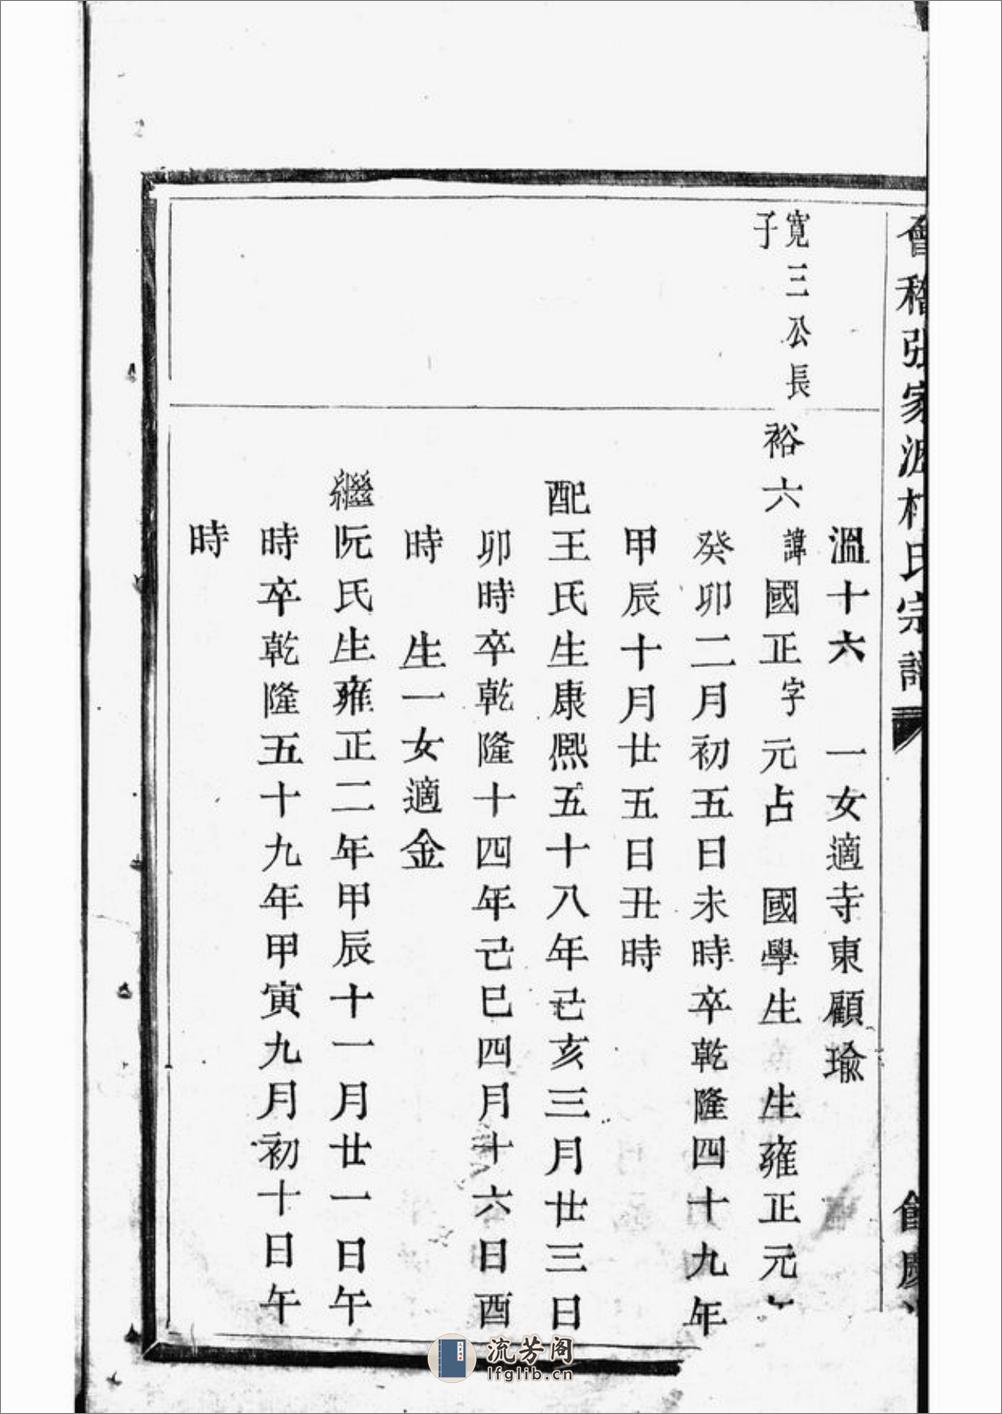 會稽張家沥村氏宗譜
溫十六 一女適寺東顧瑜
寬三公長
子
裕六諱國正字元占 國學生 生雍正元
癸卯二月初五日未時卒乾隆四十九年
甲辰十月廿五日丑時
配王氏生康熙五十八年己亥三月廿三日
卯時卒乾隆十四年己巳四月十六日酉
時 生一女適金
繼阮氏生雍正二年甲辰十一月廿一日午
時卒乾隆五十九年甲寅九月初十日午
時
流芳阁
lfglib.cn